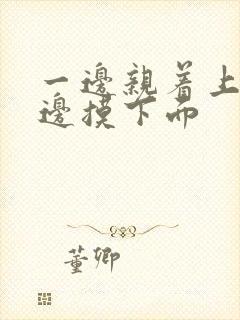 一邊親着上
邊摸下而
董卿